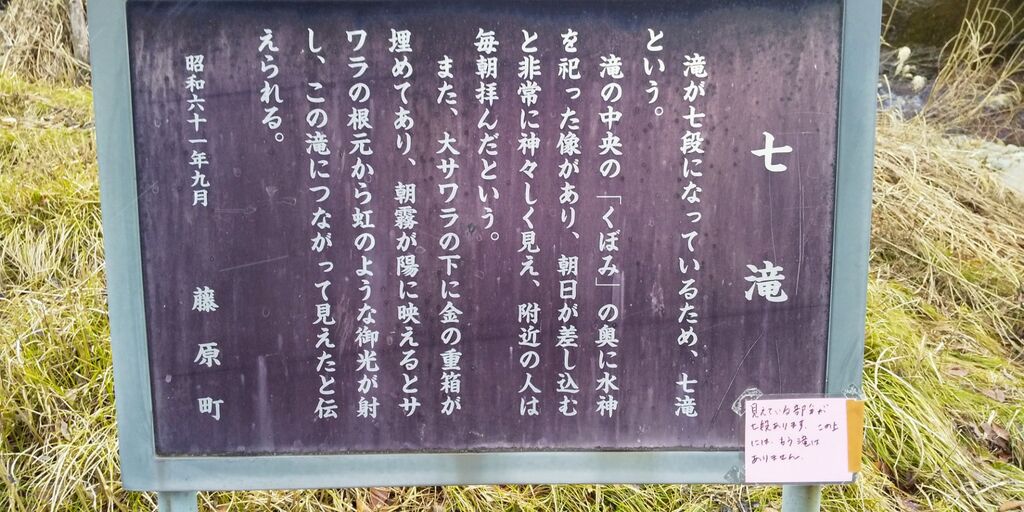 七滝
滝が七段になっているため、七滝
という。
滝の中央の「くぼみ」の奥に水神
を祀った像があり、朝日が差し込む
と非常に神々しく見え、附近の人は
毎朝拝んだという。
また、大サワラの下に金の重箱が
埋めてあり、朝霧が陽に映えるとサ
ワラの根元から虹のような御光が射
し、この滝につながって見えたと伝
えられる。
昭和六十一年九月
藤原町
見えている部分が
七段あります。この上
には、もう滝は
ありません。